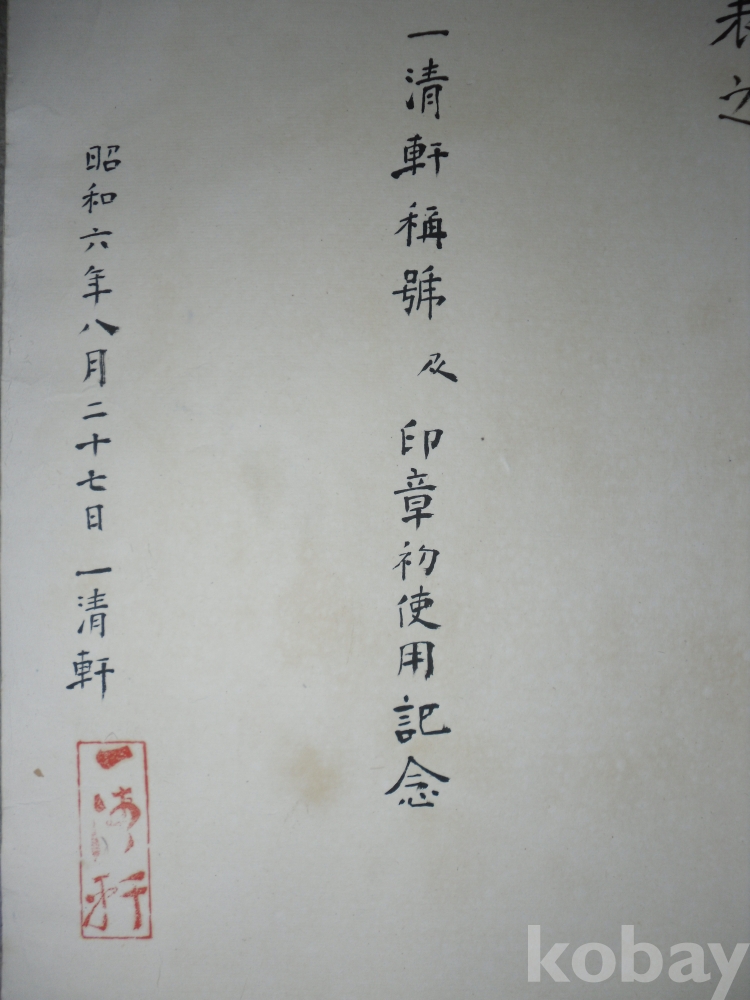 表之
一清軒稱號及印章初使用記念
昭和六年八月二十七日 一清軒
一清軒
kobay